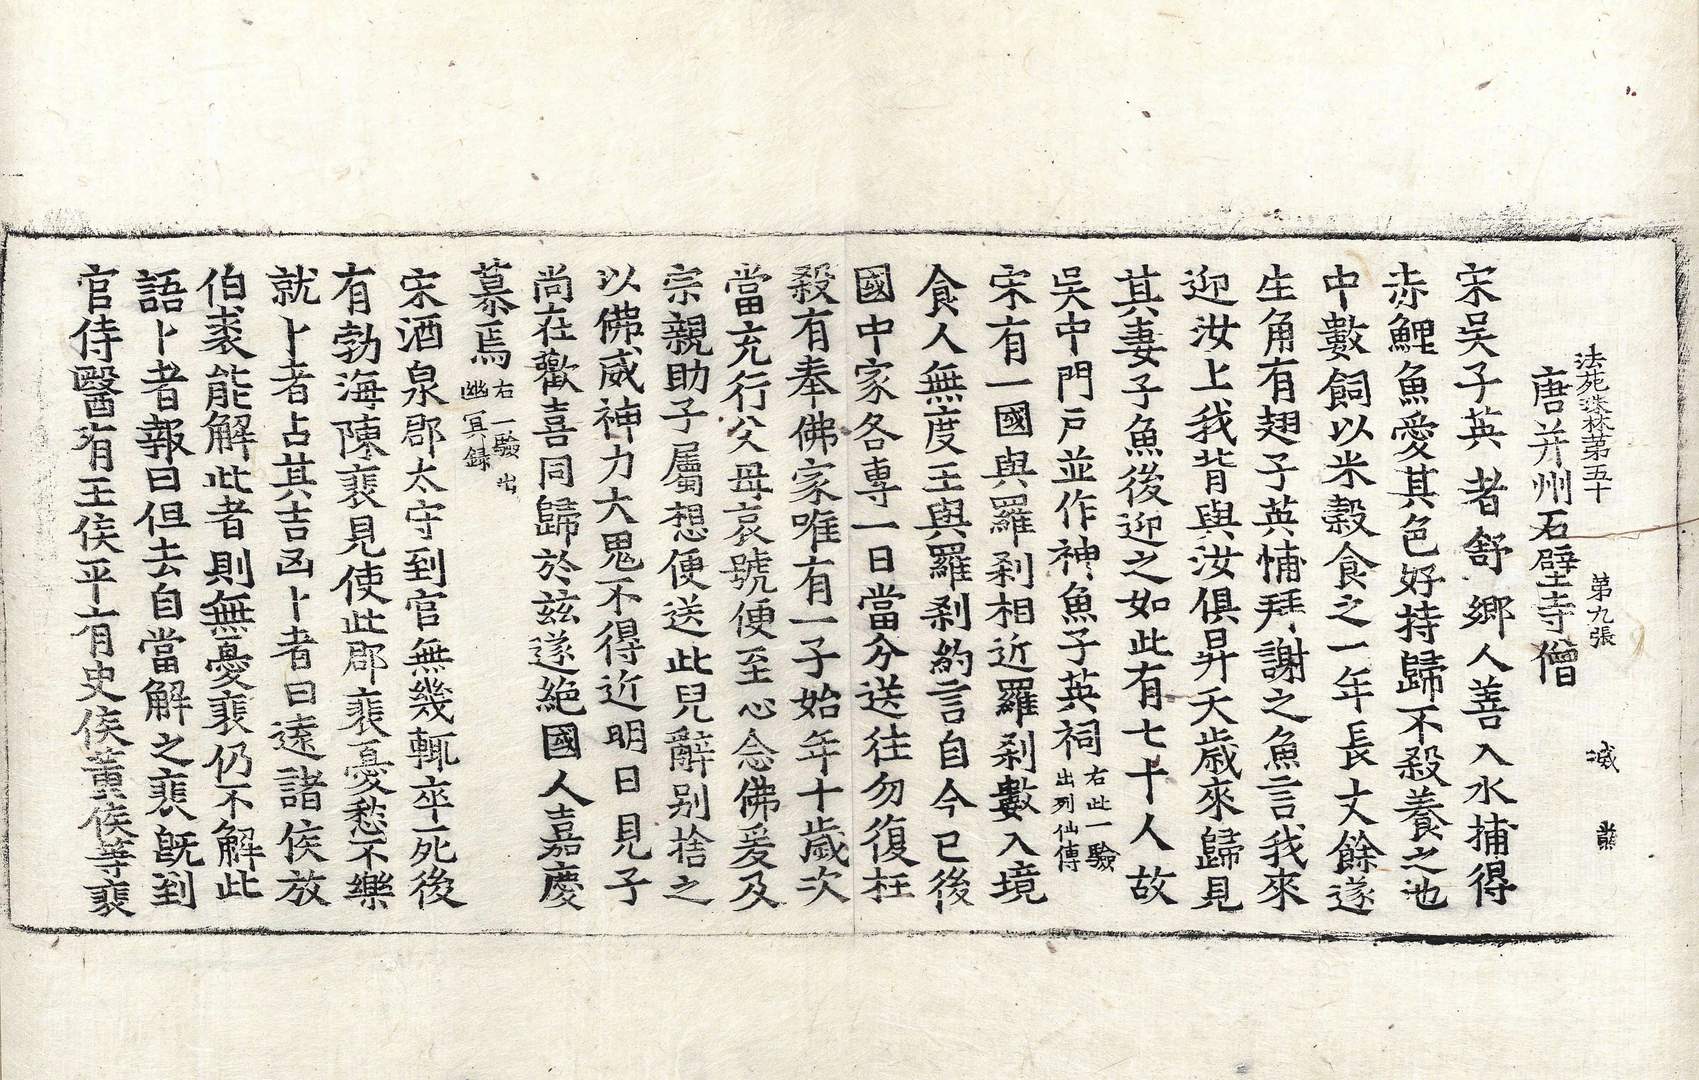 法苑珠林第五十　第九張　㓕　
唐并州石壁寺僧
宋吳子英者舒鄉人善入水捕得
赤鯉魚愛其色好持歸不殺養之池
中數飼以米穀食之一年長丈餘遂
生角有翅子英怖拜謝之魚言我來
迎汝上我背與汝俱昇天歲來歸見
其妻子魚後迎之如此有七十人故
吳中門戶並作神魚子英祠右此一驗出列仙傳
宋有一國與羅剎相近羅剎數入境
食人無度王與羅剎約言自今已後
國中家各專一日當分送往勿復枉
殺有奉佛家唯有一子始年十歲次
當充行父母哀號便至心念佛爰及
宗親助子屬想便送此兒辭别捨之
以佛威神力大鬼不得近明日見子
尚在歡喜同歸於茲遂絶國人嘉慶
慕焉右一驗出幽冥錄
宋酒泉郡太守到官無幾輒卒死後
有勃海陳裴見使此郡裴憂愁不樂
就卜者占其吉凶卜者曰遠諸侯放
伯裘能解此者則無憂裴仍不解此
語卜者報曰但去自當解之裴旣到
官侍醫有王侯平有史侯董侯等裴